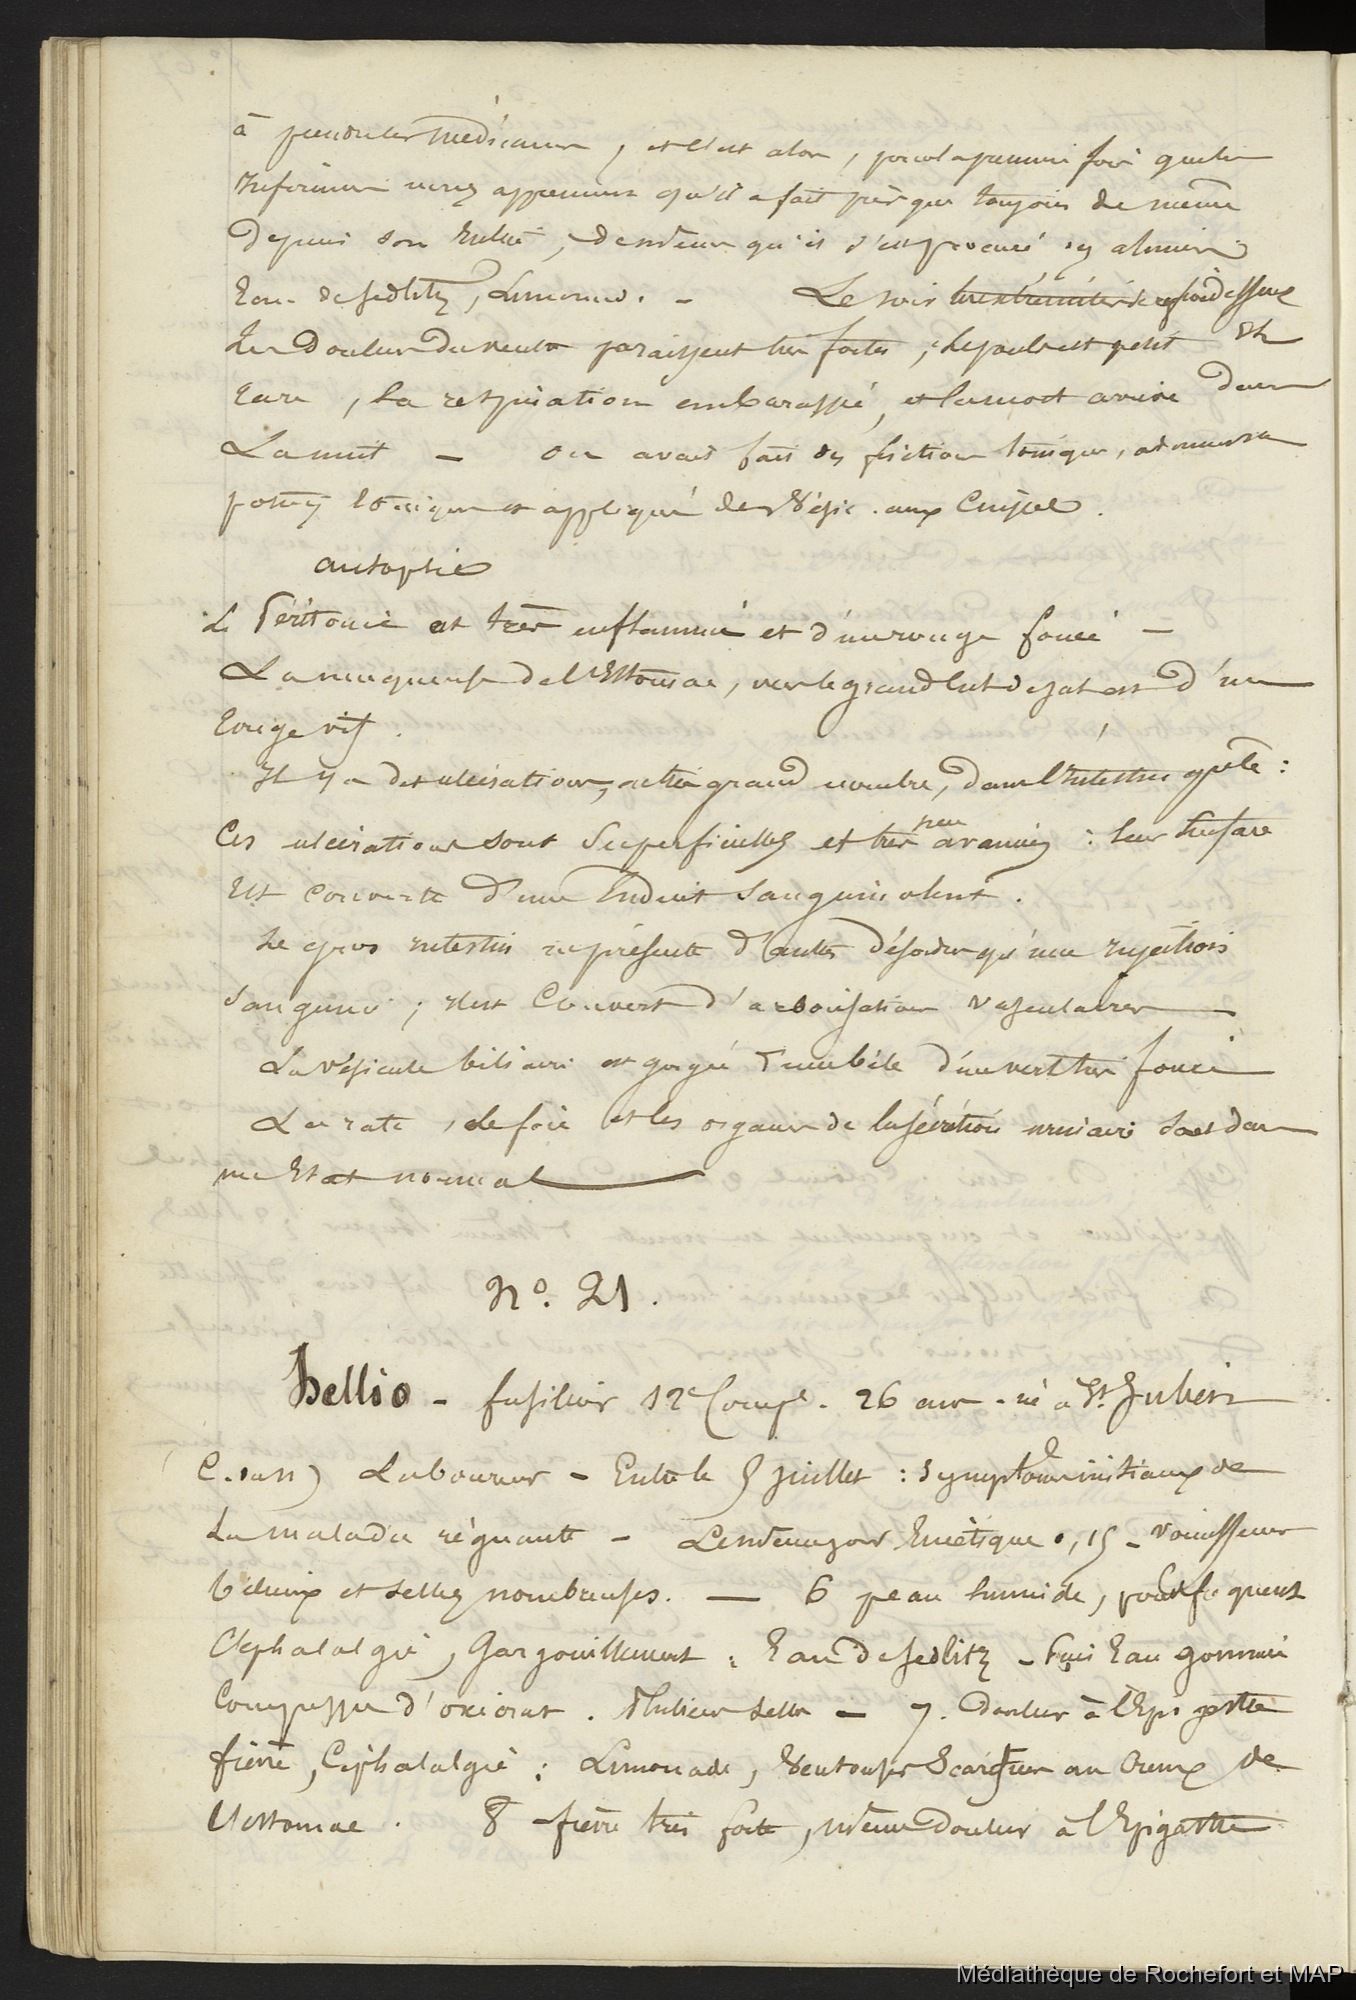 à prendre les médicamens, et c'est alors, pour la première fois que les
infirmiers venez apprennent qu'il a fait presque toujours de même
depuis son entrée, de même qu'il s'est procuré des alimens
Eau de sedlitz, Limonad. - Le soir les extrémités se refroidissent
Les douleurs du ventre paraissent très fortes, le pouls est petit et
rare, la respiration embarassée, et la mort arrive dans
La nuit - on avait fait des frictions toniques, administré
potions toniques et appliqué des vésic. aux cuisses.
autopsie
Le Péritoine est très enflammé et d'un rouge foncé -
La muqueuse de l'Estomac, vers le grand cul de sac est d'un
rouge vif.
Il y a des ulcérations, en très grand nombre, dans l'intestin grêle :
Ces ulcérations sont superficielles et très peu avancées : leur surface
est couverte d'un enduit sanguinolent.
Le gros intestin ne présente d'autres désordres qu'une injection
sanguine ; il est couvert d'arborisations vasculaires
La vésicule biliaire est gorgée d'une bile d'un vert très foncé
La rate, le foie et les organes de la sécrétion urinaire sont dans
un Etat normal
N°. 21.
Hellio - fusilier 12e Comp. 26 ans - né à St. Julien
C. du N) Laboureur - Entre le 5 juillet : symptômes initiaux de
La maladie régnante - Lendemain Emétique 0,15 - vomissemens
bilieux et selles nombreuses. — 6 peau humide, pouls fréquent
Céphalalgie, Gargouillement : Eau de sedlitz - Puis Eau gommée
Compresses d'oxicrat. Plusieurs selles — 7. Douleur à l'Epigastre
fièvre, Céphalalgie : Limonade, Ventouses scarifiées au creux de
l'Estomac. 8 - fièvre très forte, même douleur à l'Epigastre
Médiathèque de Rochefort et MAP